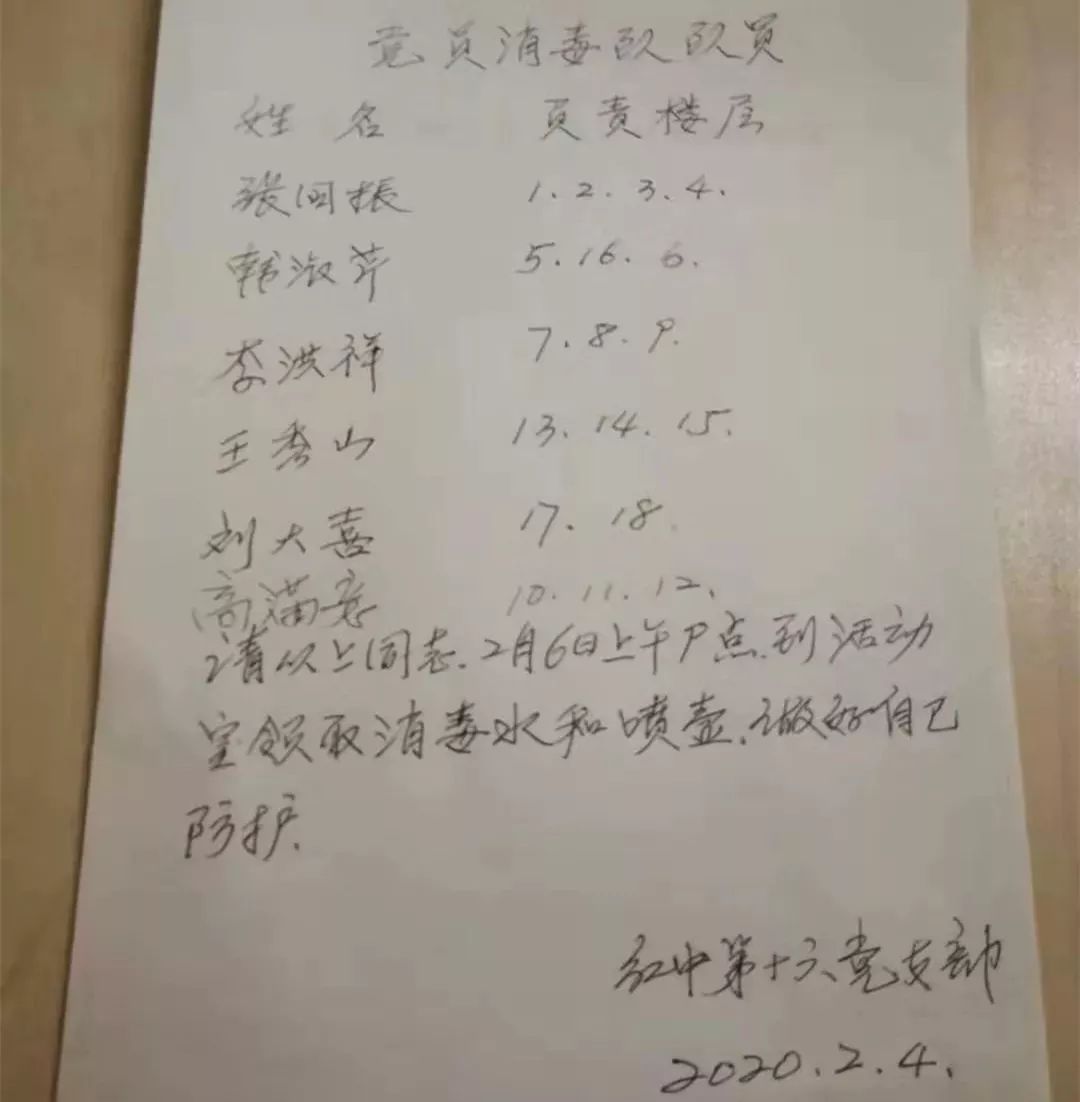 党员消毒队队员
姓名 负责楼层
张同振 1.2.3.4.
韩淑芹 5.16.6.
李洪祥 7.8.9.
王秀山 13.14.15.
刘大喜 17.18.
高满意 10.11.12.
请以上同志.2月6日上午9点.到活动
室领取消毒水和喷壶.做好自己
防护.
红中第十六党支部
2020.2.4.